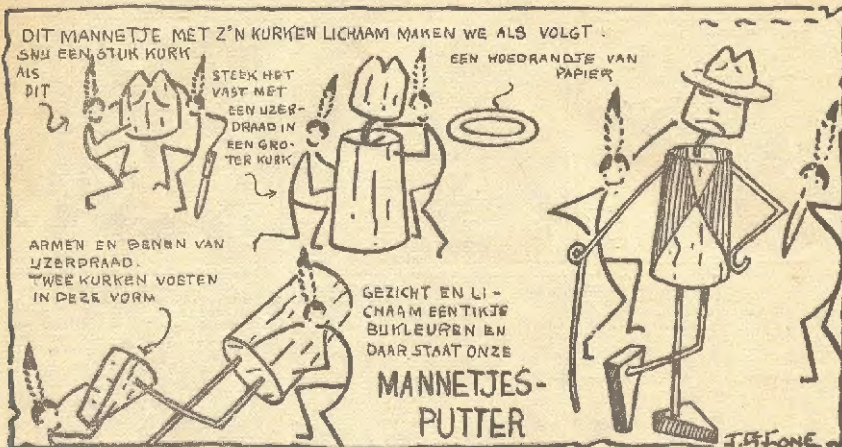 DIT MANNETJE MET Z'N KURKEN LICHAAM MAKEN WE ALS VOLGT:
SNIJ EEN STUK KURK
ALS
DIT
STEEK HET
VAST MET
EEN IJZER-
DRAAD IN
EEN GRO-
TER KURK
EEN HOEDRANDJE VAN
PAPIER
ARMEN EN BENEN VAN
IJZERDRAAD.
TWEE KURKEN VOETEN
IN DEZE VORM
GEZICHT EN LI-
CHAAM EEN TIKJE
BIJKLEUREN EN
DAAR STAAT ONZE
MANNETJES-
PUTTER